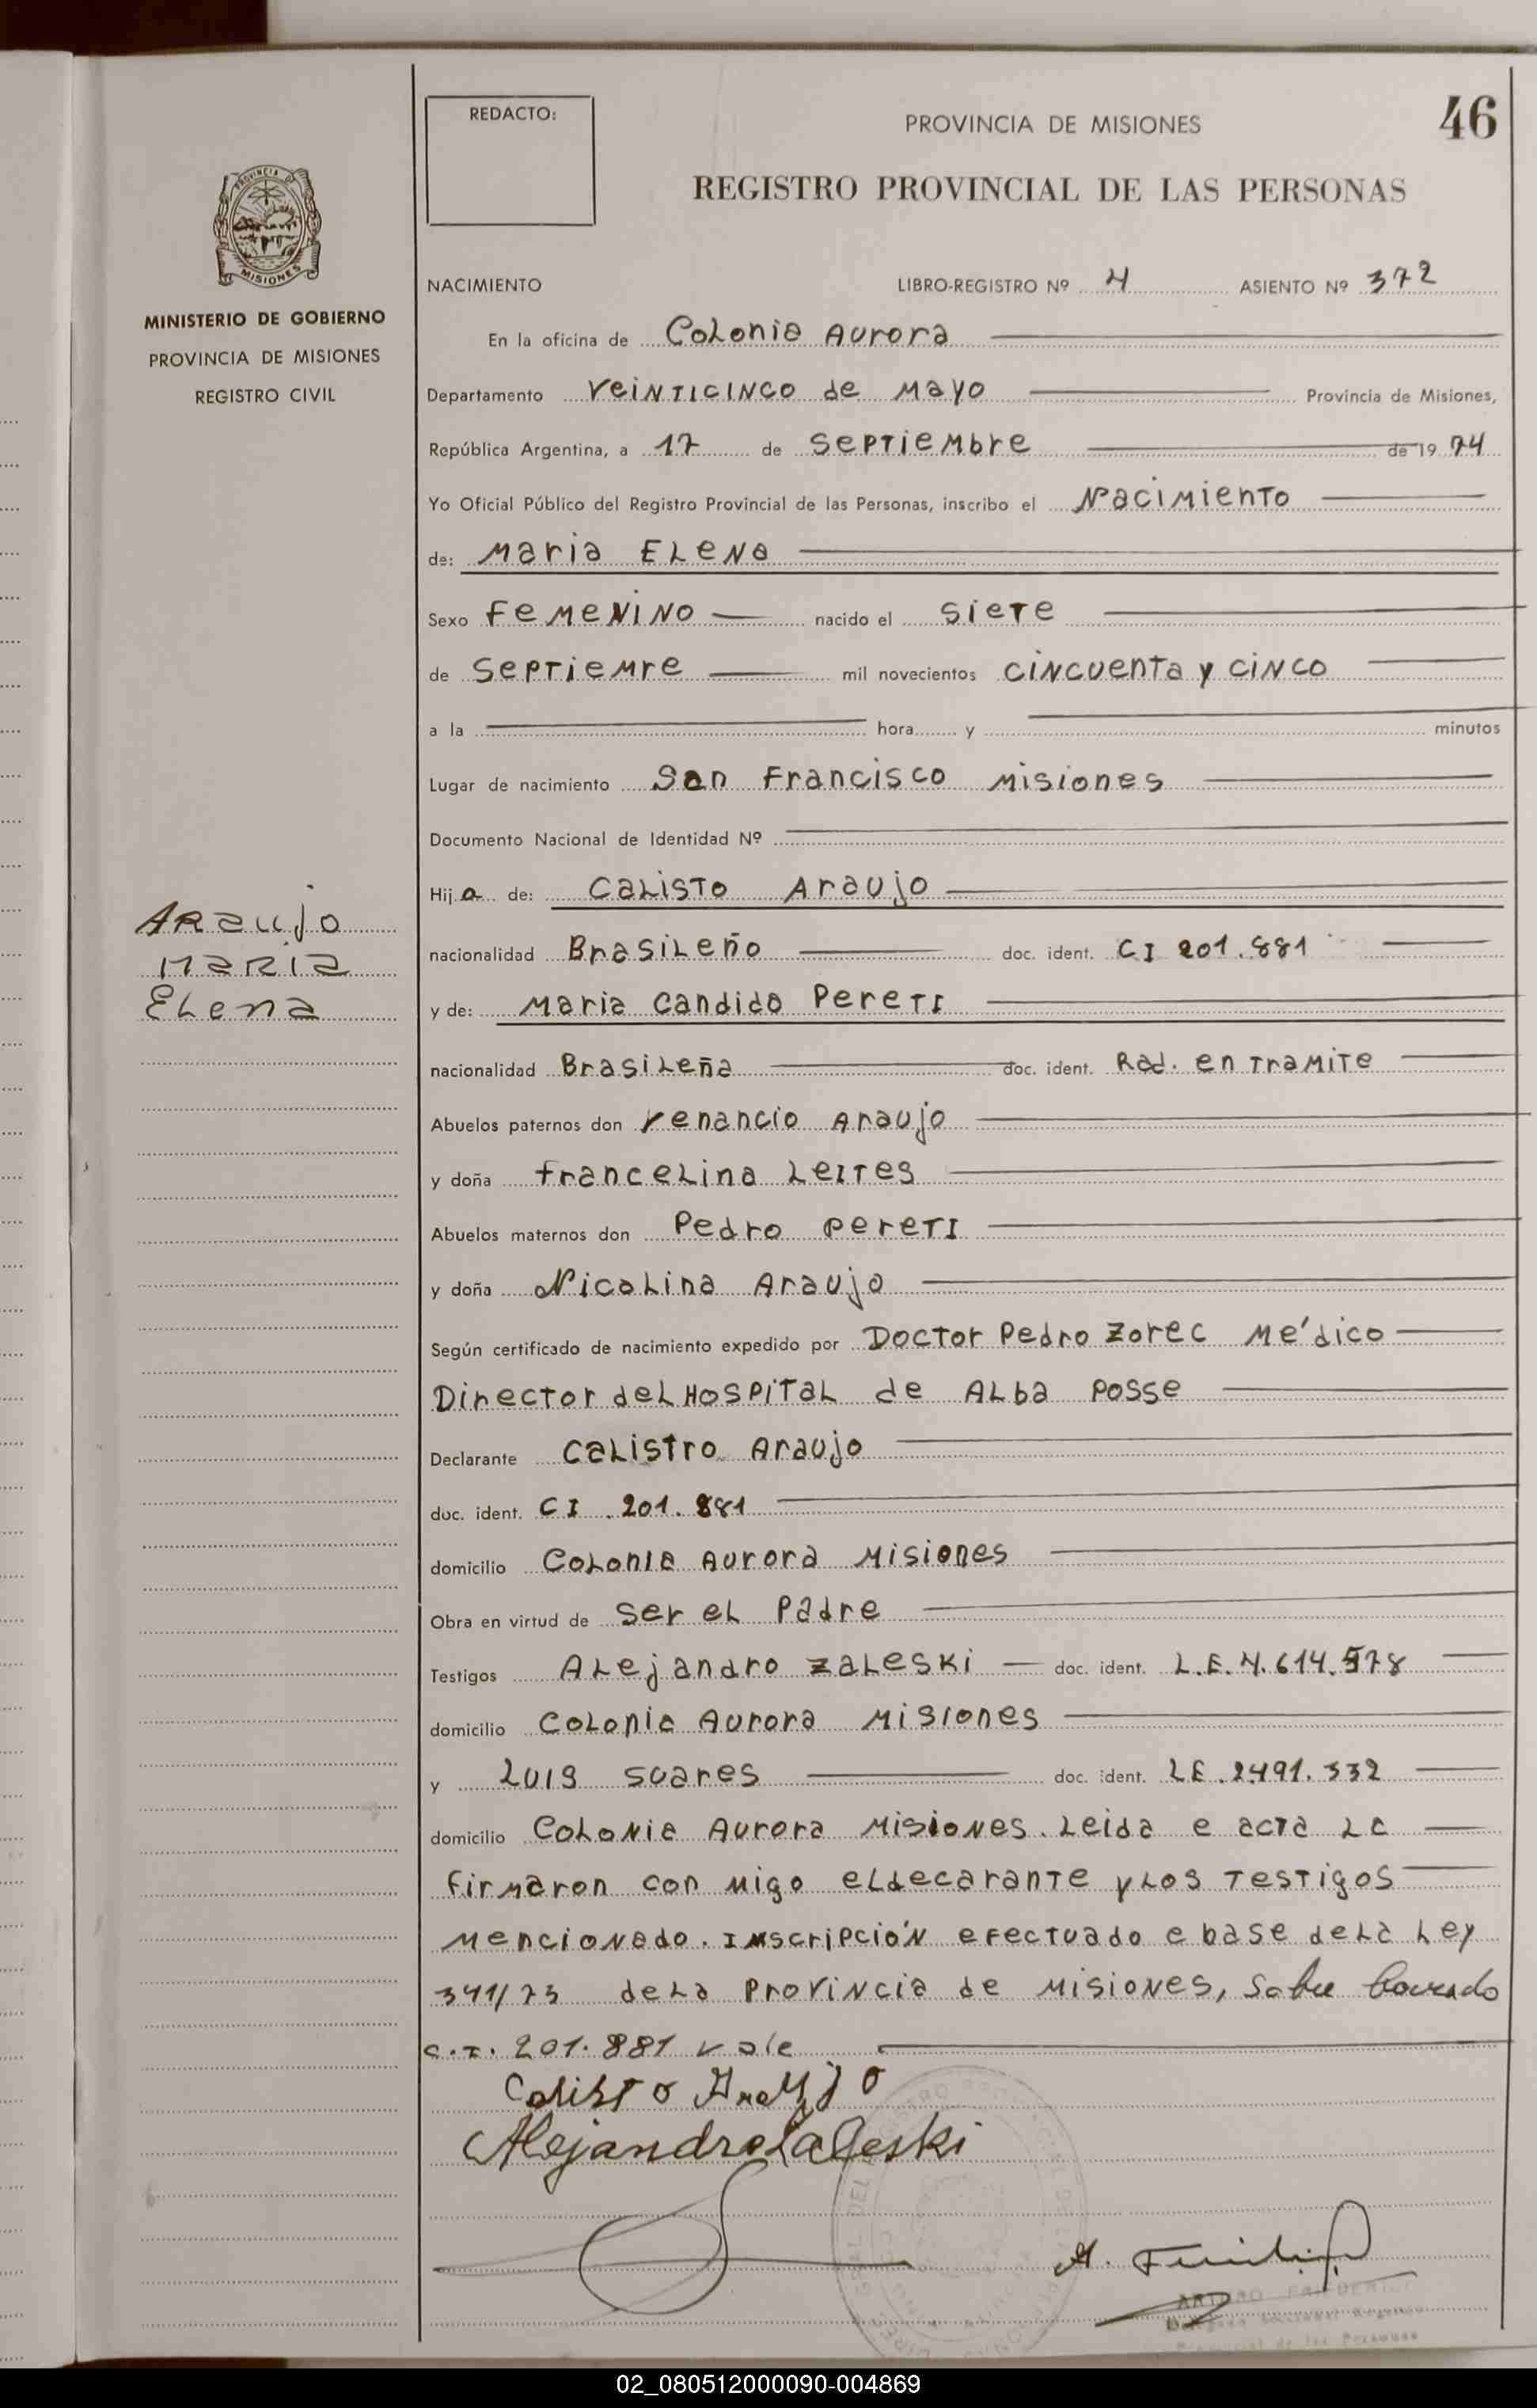 REDACTO:
PROVINCIA DE MISIONES
46
REGISTRO PROVINCIAL DE LAS PERSONAS
PROVINCIA DE
MISIONES
MINISTERIO DE GOBIERNO
PROVINCIA DE MISIONES
REGISTRO CIVIL
NACIMIENTO LIBRO-REGISTRO Nº 4 ASIENTO Nº 372
En la oficina de Colonia Aurora
Departamento Veinticinco de Mayo Provincia de Misiones,
República Argentina, a 17 de Septiembre de 19 74
Yo Oficial Público del Registro Provincial de las Personas, inscribo el Nacimiento
de: Maria Elena
Sexo Femenino nacido el siete
de Septiemre mil novecientos cincuenta y cinco
a la hora y minutos
Lugar de nacimiento San Francisco Misiones
Documento Nacional de Identidad Nº
Hija de: Calisto Araujo
Araujo
Maria
Elena
nacionalidad Brasileño doc. ident. CI 201.881
y de: Maria Candida Pereti
nacionalidad Brasileña doc. ident. Rad. en Tramite
Abuelos paternos don Venancio Araujo
y doña Francelina Leites
Abuelos maternos don Pedro Pereti
y doña Nicolina Araujo
Según certificado de nacimiento expedido por Doctor Pedro Zorec Médico
Director del Hospital de Alba Posse
Declarante Calistro Araujo
doc. ident. CI .201.881
domicilio Colonia Aurora Misiones
Obra en virtud de ser el Padre
Testigos Alejandro Zaleski doc. ident. L.E.4.614.578
domicilio Colonia Aurora Misiones
y Luis Suares doc. ident. LE.2491.332
domicilio Colonia Aurora Misiones. Leida e acta la
firmaron con migo el decarante y los testigos
mencionado. Inscripción efectuado a base de la Ley
341/73 de la Provincia de Misiones, Sobre borrado
C.I. 201.881 vale
Calisto Araujo
Alejandro Zaleski
A. Friederich
ARTURO FRIEDERICH
Provincial de las Personas
02_080512000090-004869